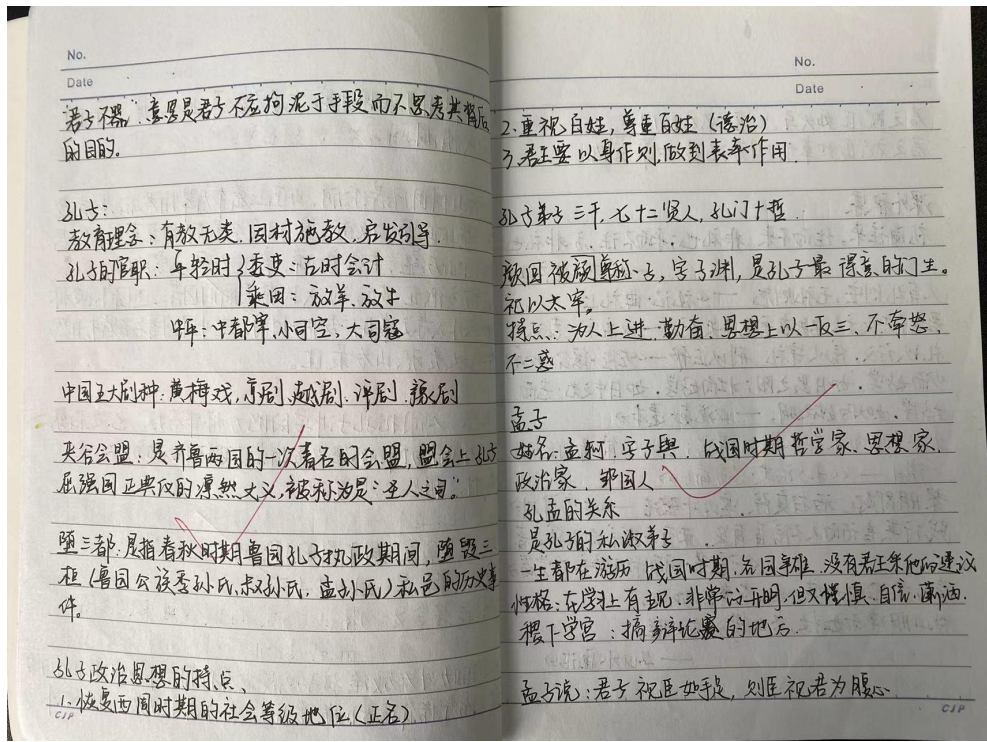 No.
Date
"君子不器":意思是君子不应拘泥于手段而不思考其背后
的目的。
孔子:
教育理念:有教无类.因材施教.启发引导.
孔子的官职:年轻时{委吏:古时会计
乘田:放羊、放牛
中年:中都宰,小司空,大司寇
中国五大剧种:黄梅戏,京剧.越剧.评剧.豫剧
夹谷会盟:是齐鲁两国的一次著名的会盟,盟会上孔子
屈强国正典仪的凛然大义,被称为是:圣人之司。"
堕三都.是指春秋时期鲁国孔子执政期间,堕毁三
桓(鲁国公族季孙氏,叔孙氏,孟孙氏)私邑的历史事
件。
孔子政治思想的特点、
1.恢复西周时期的社会等级地位(正名)
CJP
No.
Date
2.重视百姓,尊重百姓(德治)
3.君主要以身作则,做到表率作用.
孔子弟子三千,七十二贤人,孔门十哲.
颜回被颜尊称子,字子渊,是孔子最得意的门生。
祀以太牢。
特点:为人上进.勤奋.思想上以一反三、不牵怒,
不二惑
孟子
姓名:孟轲.字子舆.战国时期哲学家、思想家,
政治家.邹国人
孔孟的关系
是孔子的私淑弟子.
一生都在游历.战国时期.各国争雄.没有君王采他的建议
性格:在学习上有主见.非常的开明.但又谨慎.自信.潇洒.
稷下学宫:搞辩论赛的地方.
孟子说:君子视臣如手足,则臣视君为腹心.
CJP